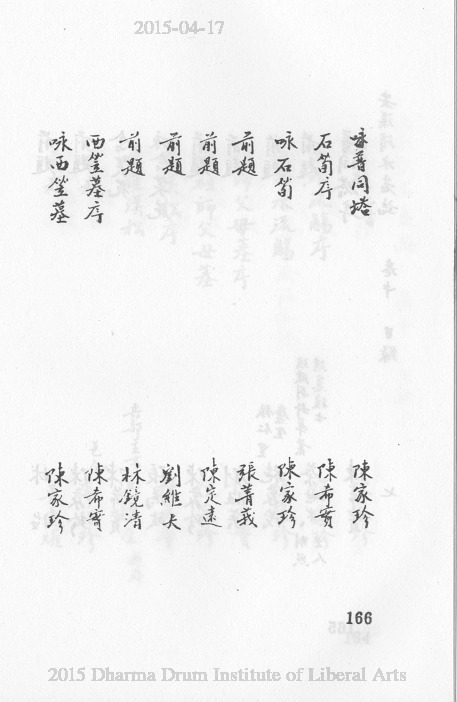 2015-04-17
咏普同塔 陳家珍
石筍序 陳希實
咏石筍 陳家珍
前題 張菁莪
前題 陳定遠
前題 劉維夫
前題 林鏡清
西笠墓序 陳希實
咏西笠墓 陳家珍
166
2015 Dharma Drum Institute of Liberal Arts